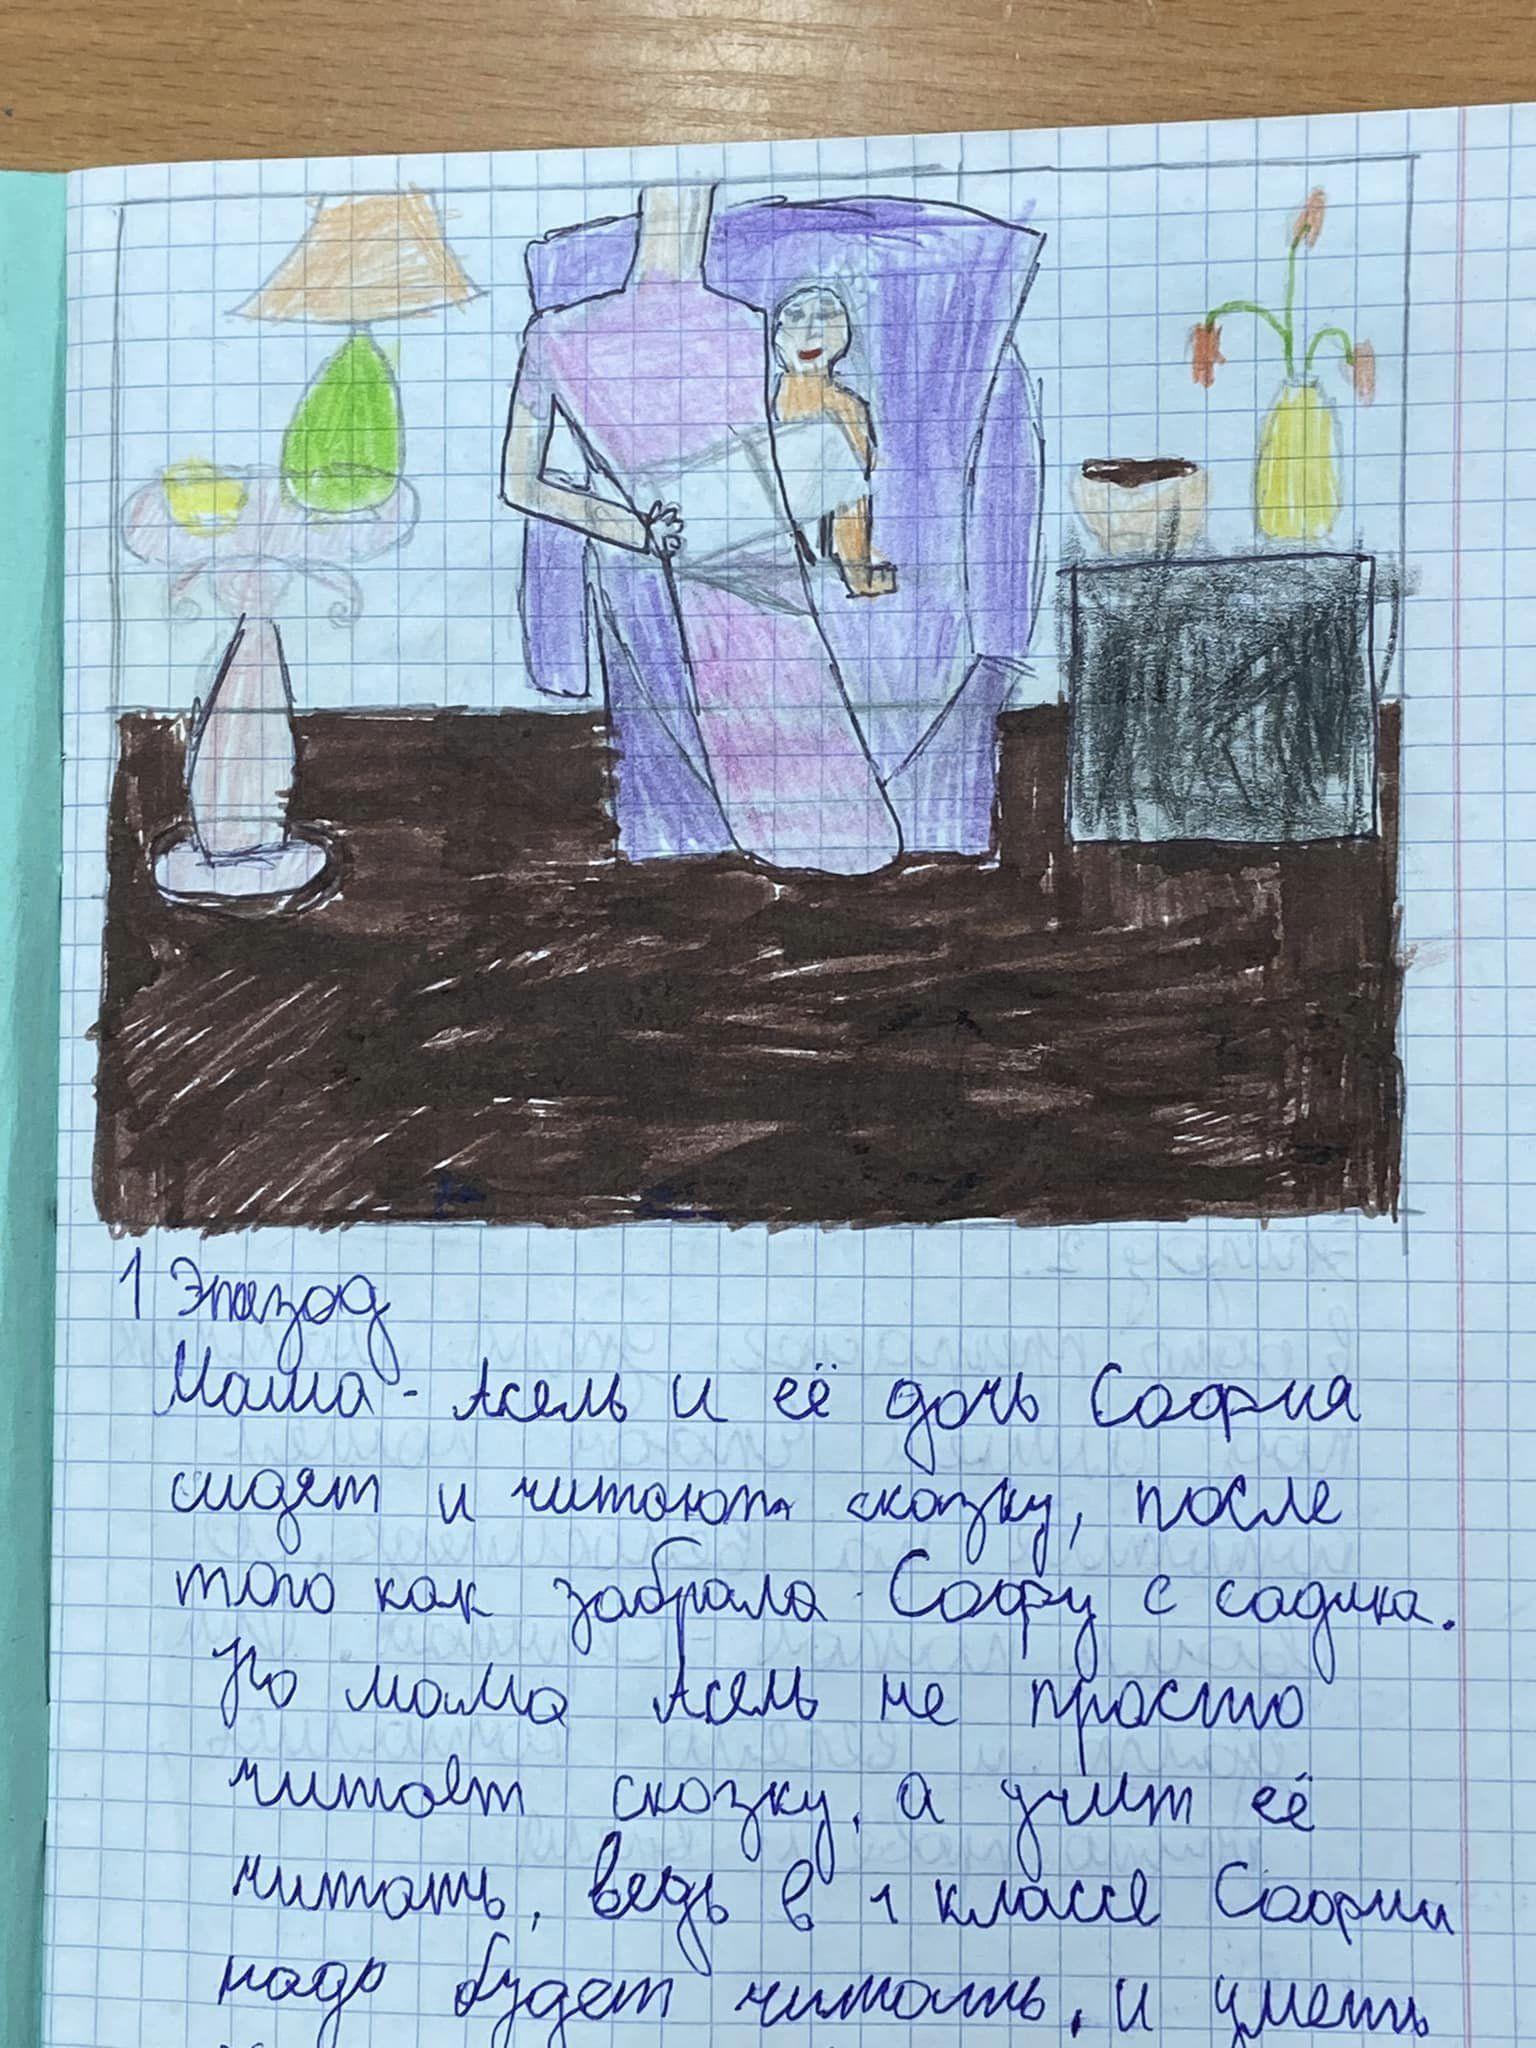 1 Эпизод
Мама - Асель и её дочь София
сидят и читают сказку, после
того как забрала Софу с садика.
Но мама Асель не просто
читает сказку, а учит её
читать, ведь в 1 классе Софии
надо будет читать, и уметь